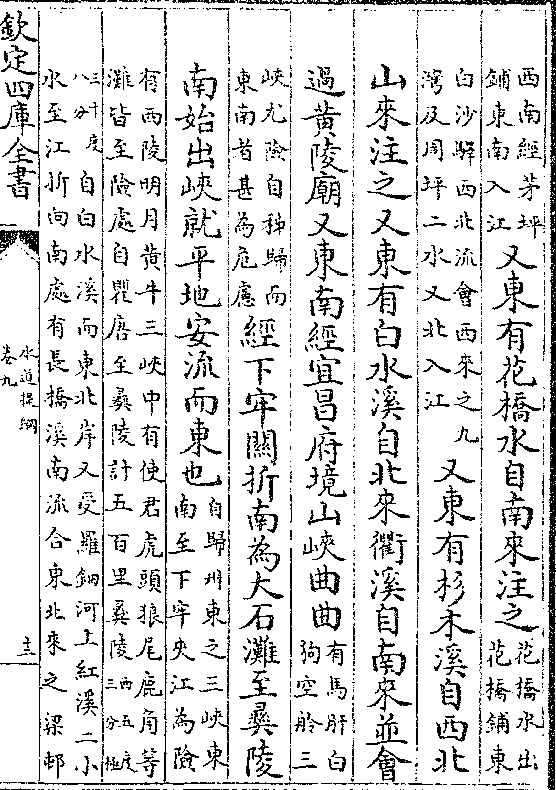 西南經茅坪
鋪東南入江
又東有花橋水自南來注之
花橋水出
花橋鋪東
白沙驛西北流會西來之九
灣及周坪二水又北入江
又東有杉木溪自西北
山來注之又東有白水溪自北來衢溪自南來並會
過黃陵廟又東南經宜昌府境山峽曲曲
有馬肝白
狗空舲三
峽尤險自秭歸而
東南者甚為危慮
經下牢關折南為大石灘至彝陵
南始出峽就平地安流而東也
自歸州東之三峽東
南至下牢夾江為險
有西陵明月黃牛三峽中有使君虎頭狼尾鹿角等
灘皆至險處自瞿唐至彝陵計五百里彝陵
西五度
三分極
三十度
八分
自白水溪而東北岸又受羅鈿河上紅溪二小
水至江折向南處有長橋溪南流合東北來之梁邨
欽定四庫全書
水道提綱
卷九
十三